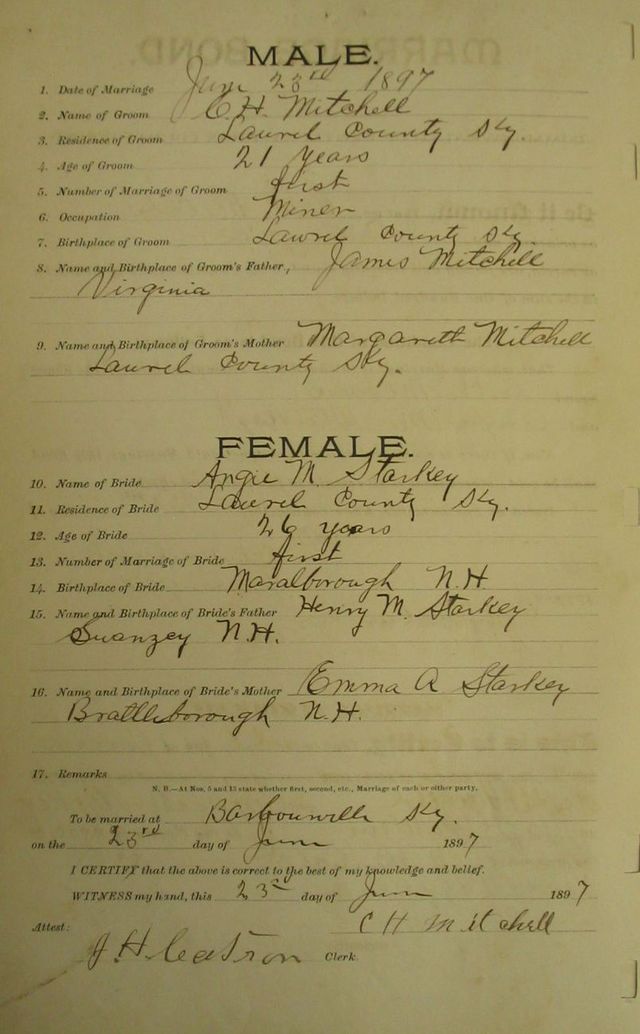 MALE.
1. Date of Marriage June 23rd 1897
2. Name of Groom C. H. Mitchell
3. Residence of Groom Laurel County Ky.
4. Age of Groom 21 years
5. Number of Marriage of Groom first
6. Occupation Miner
7. Birthplace of Groom Laurel County Ky.
8. Name and Birthplace of Groom's Father, James Mitchell
Virginia
9. Name and Birthplace of Groom's Mother Margarett Mitchell
Laurel County Ky.
FEMALE.
10. Name of Bride Angie M. Starkey
11. Residence of Bride Laurel County Ky.
12. Age of Bride 26 years
13. Number of Marriage of Bride first
14. Birthplace of Bride Maralborough N.H.
15. Name and Birthplace of Bride's Father Henry M. Starkey
Swanzey N.H.
16. Name and Birthplace of Bride's Mother Emma A Starkey
Brattleborough N.H.
17. Remarks
N. B.—At Nos. 5 and 13 state whether first, second, etc., Marriage of each or either party.
To be married at Barbourville Ky.
on the 23rd day of June 1897
I CERTIFY that the above is correct to the best of my knowledge and belief.
WITNESS my hand, this 23rd day of June 1897
C H Mitchell
Attest:
J. H. Catron Clerk.